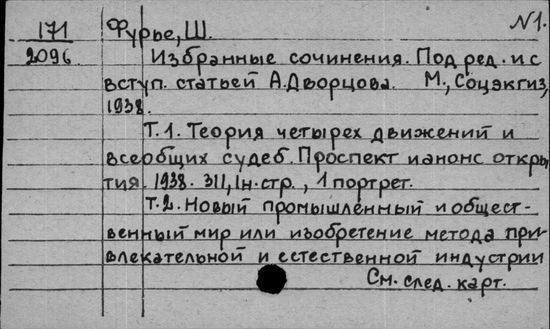 171
2096
Фурье, Ш.
N1.
Избранные сочинения. Под ред. и с
вступ. статьей А.Дворцова. М., Соцэкгиз,
1938.
Т.1. Теория четырех движений и
всеобщих судеб. Проспект и анонс откры
тия. 1938. 311, 1н.стр., 1 портрет.
Т.2. Новый промышленный и общест-
венный мир или изобретение метода при
влекательной и естественной индустрии
См. след. карт.